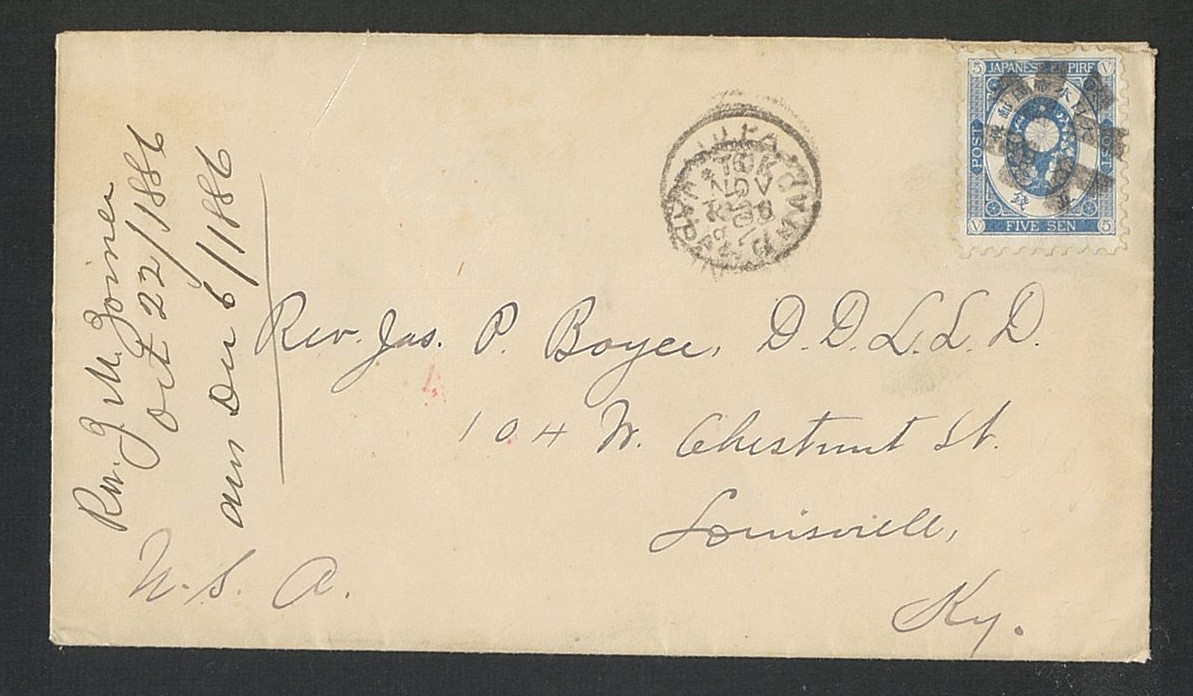 5 JAPANESE EMPIRE V
POST
POST
錢
V FIVE SEN 5
YOKOHAMA
JAPAN
NOV
Rev. Jas. P. Boyce, D. D. L. L. D.
104 W. Chestnut St.
Louisville,
Ky.
U. S. A.
Rev. J. M. Joiner
Oct 22/1886
ans Dec 6/1886